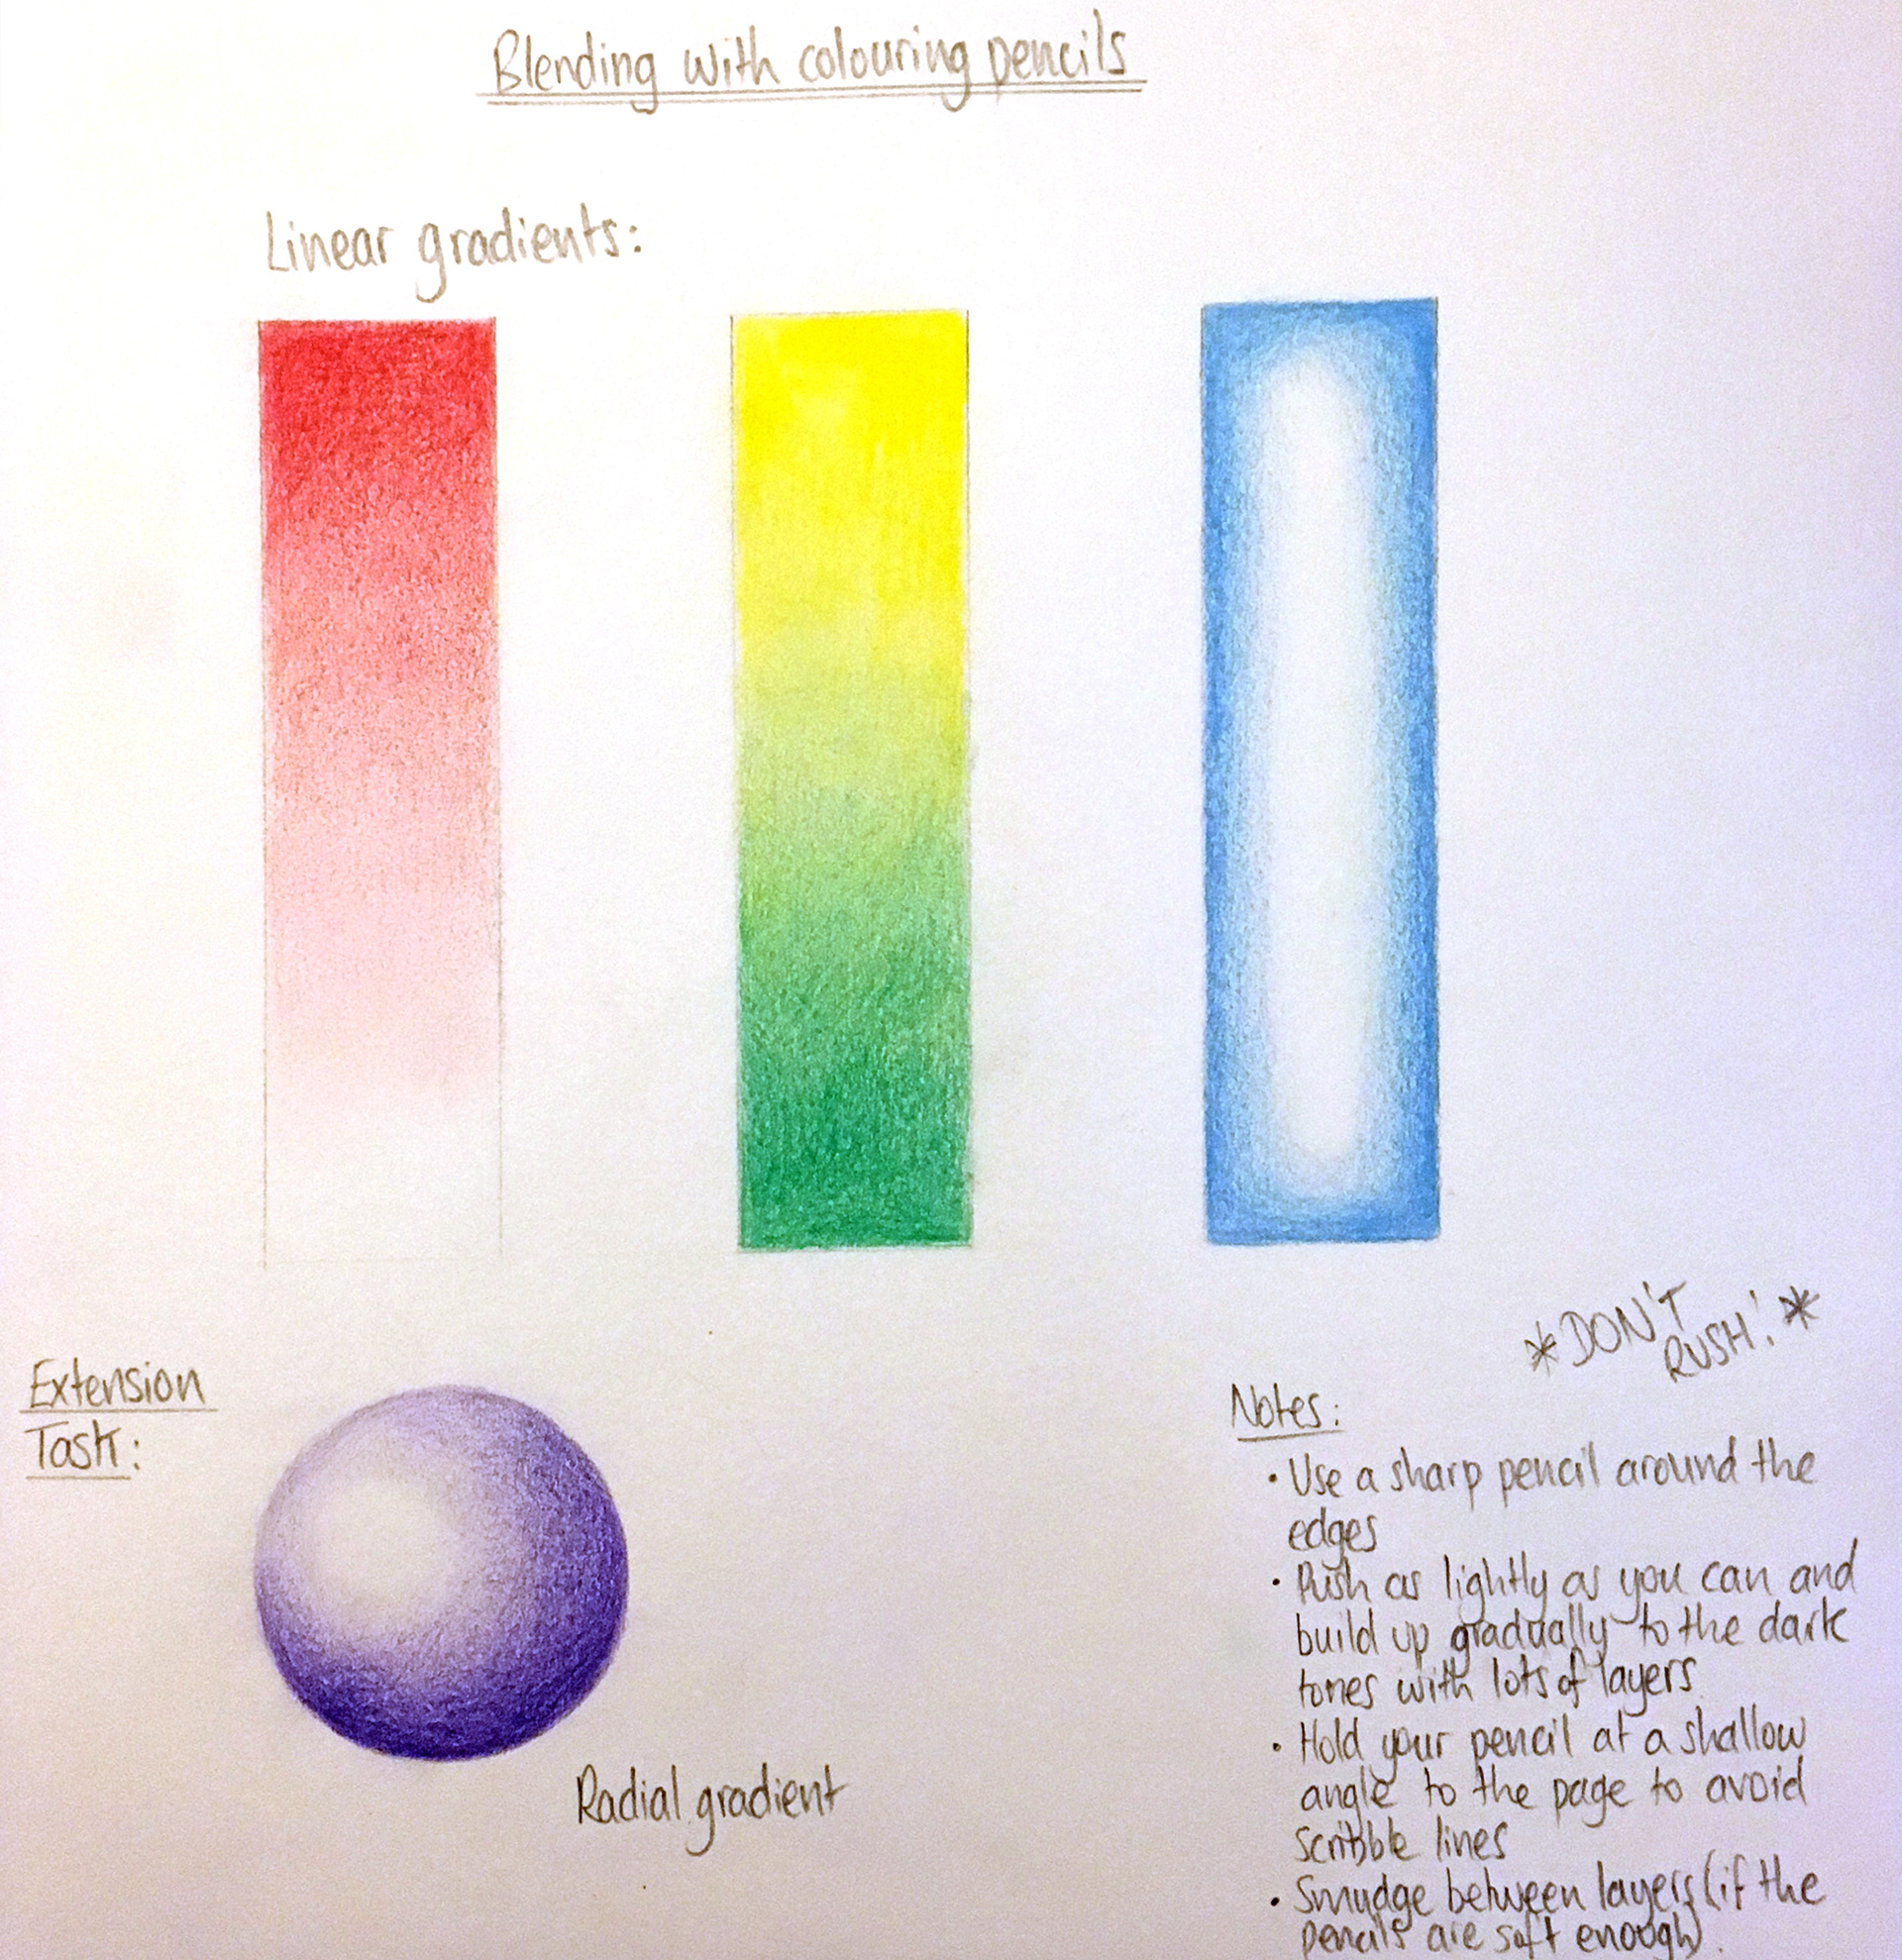 Blending with colouring pencils
Linear gradients:
Extension
Task:
Radial gradient
*DON'T
RUSH!*
Notes:
• Use a sharp pencil around the
edges
• Push as lightly as you can and
build up gradually to the dark
tones with lots of layers
• Hold your pencil at a shallow
angle to the page to avoid
scribble lines
• Smudge between layers (if the
pencils are soft enough)